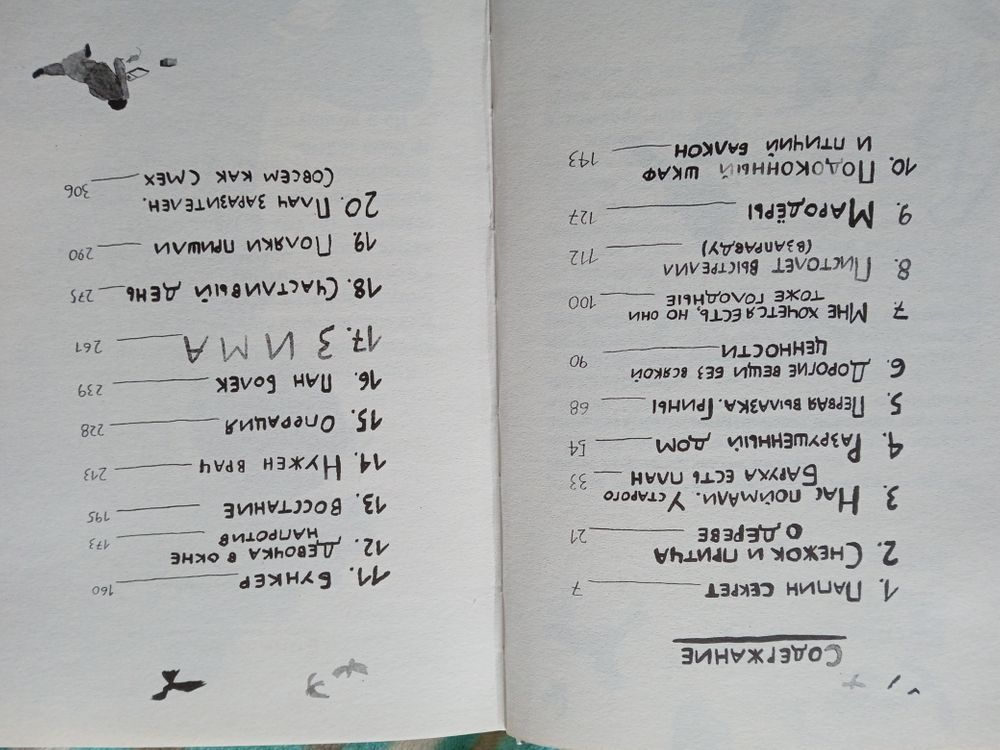 СОДЕРЖАНИЕ
1. ПАПИН СЕКРЕТ 7
2. СНЕЖОК И ПРИТЧА
О ДЕРЕВЕ 21
3. НАС ПОЙМАЛИ. У СТАРОГО
БАРУХА ЕСТЬ ПЛАН 33
4. РАЗРУШЕННЫЙ ДОМ 54
5. ПЕРВАЯ ВЫЛАЗКА. ГРИНЫ 68
6. ДОРОГИЕ ВЕЩИ БЕЗ ВСЯКОЙ
ЦЕННОСТИ 90
7. МНЕ ХОЧЕТСЯ ЕСТЬ, НО ОНИ
ТОЖЕ ГОЛОДНЫЕ 100
8. ПИСТОЛЕТ ВЫСТРЕЛИЛ
(ВЗАПРАВДУ) 112
9. МАРОДЁРЫ 127
10. ПОДОКОННЫЙ ШКАФ
И ПТИЧИЙ БАЛКОН 143
11. БУНКЕР 160
12. ДЕВОЧКА В ОКНЕ
НАПРОТИВ 173
13. ВОССТАНИЕ 195
14. НУЖЕН ВРАЧ 213
15. ОПЕРАЦИЯ 228
16. ПАН БОЛЕК 239
17. ЗИМА 261
18. СЧАСТЛИВЫЙ ДЕНЬ 275
19. ПОЛЯКИ ПРИШЛИ 290
20. ПЛАЧ ЗАРАЗИТЕЛЕН.
СОВСЕМ КАК СМЕХ 306